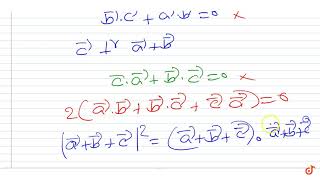 b⃗·c⃗ + a⃗·b⃗ = 0 ×
c⃗ ⊥r a⃗+b⃗
c⃗·a⃗ + b⃗·c⃗ = 0 ×
2(a⃗·b⃗ + b⃗·c⃗ + c⃗ a⃗) = 0
|a⃗+b⃗+c⃗|² = (a⃗+b⃗+c⃗)·a⃗+b⃗+c⃗